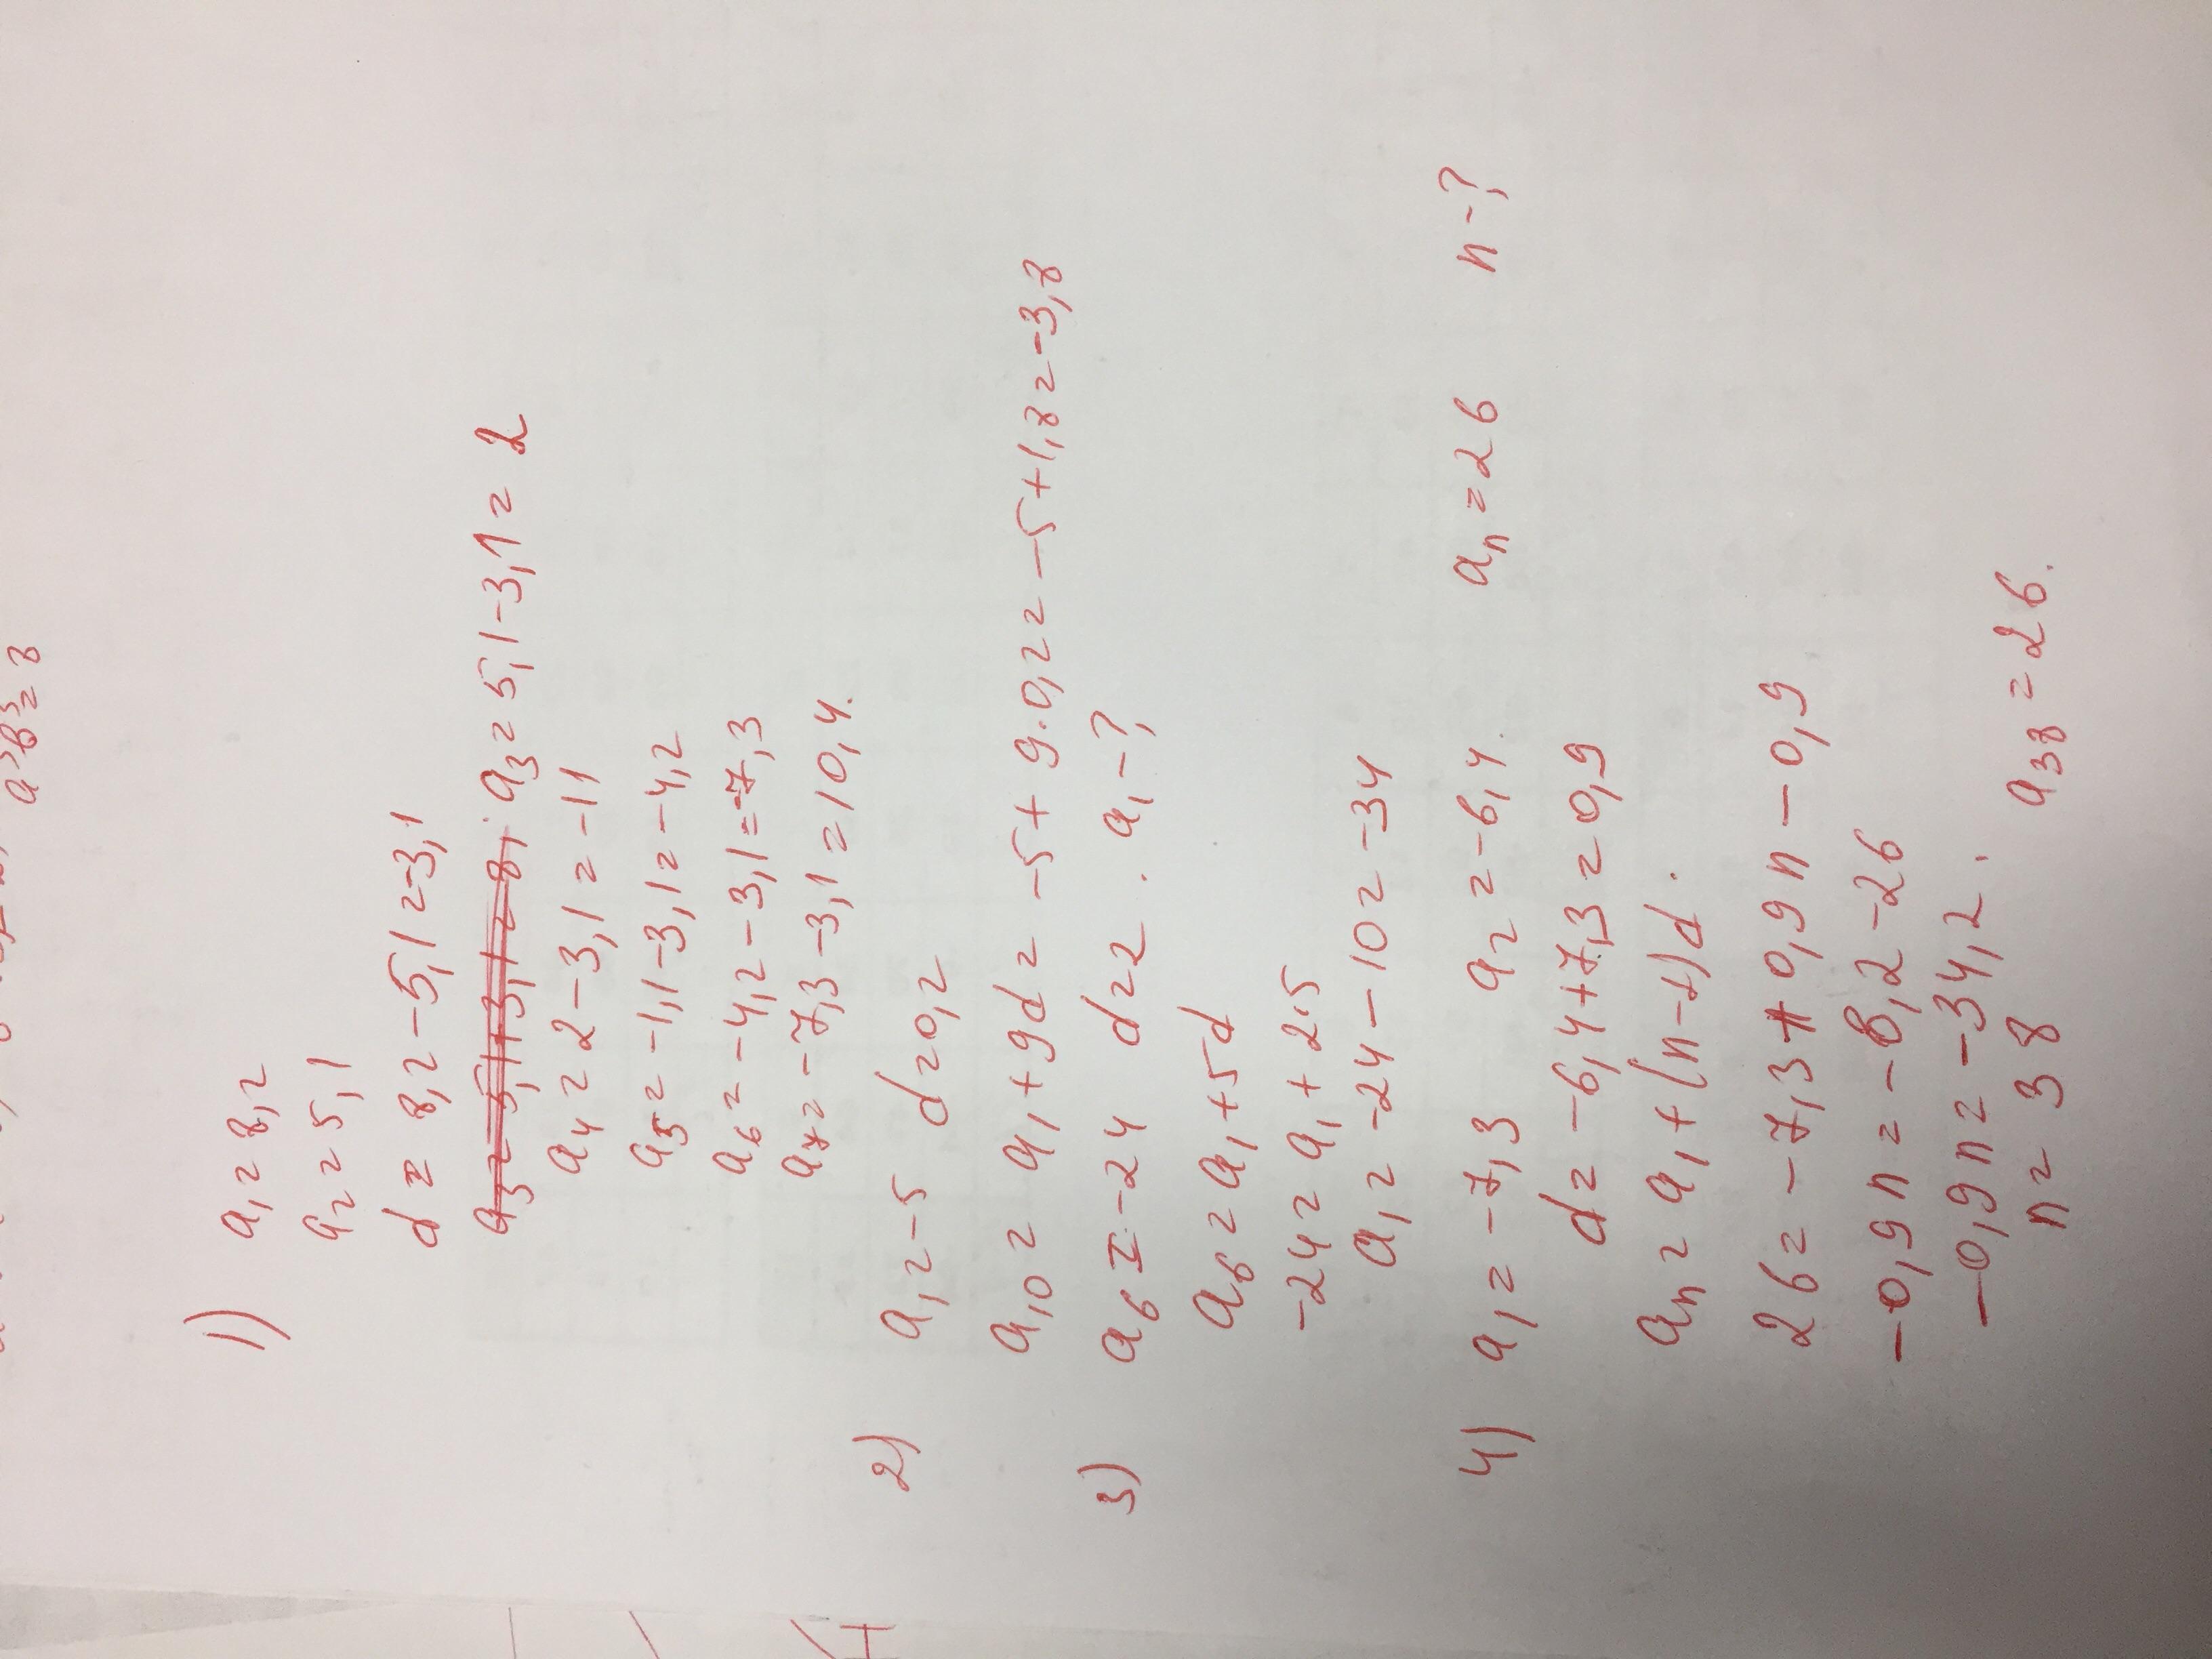 a³b³=8
1) a₁=8,2
a₂=5,1
d=8,2-5,1=-3,1
a₃=5,1-3,1=2
a₄=2-3,1=-11
a₅=-1,1-3,1=-4,2
a₆=-4,2-3,1=-7,3
a₇=-7,3-3,1=10,4.
2) a₁=-5 d=0,2
a₁₀=a₁+9d=-5+9·0,2=-5+1,8=-3,8
3) a₆=-24 d=2. a₁-?
a₆=a₁+5d
-24=a₁+2·5
a₁=-24-10=-34
4) a₁=-7,3 a₂=-6,4. aₙ=26 n-?
d=-6,4+7,3=0,9
aₙ=a₁+(n-1)d.
26=-7,3+0,9n-0,9
-0,9n=-8,2-26
-0,9n=-34,2.
n=38 a₃₈=26.